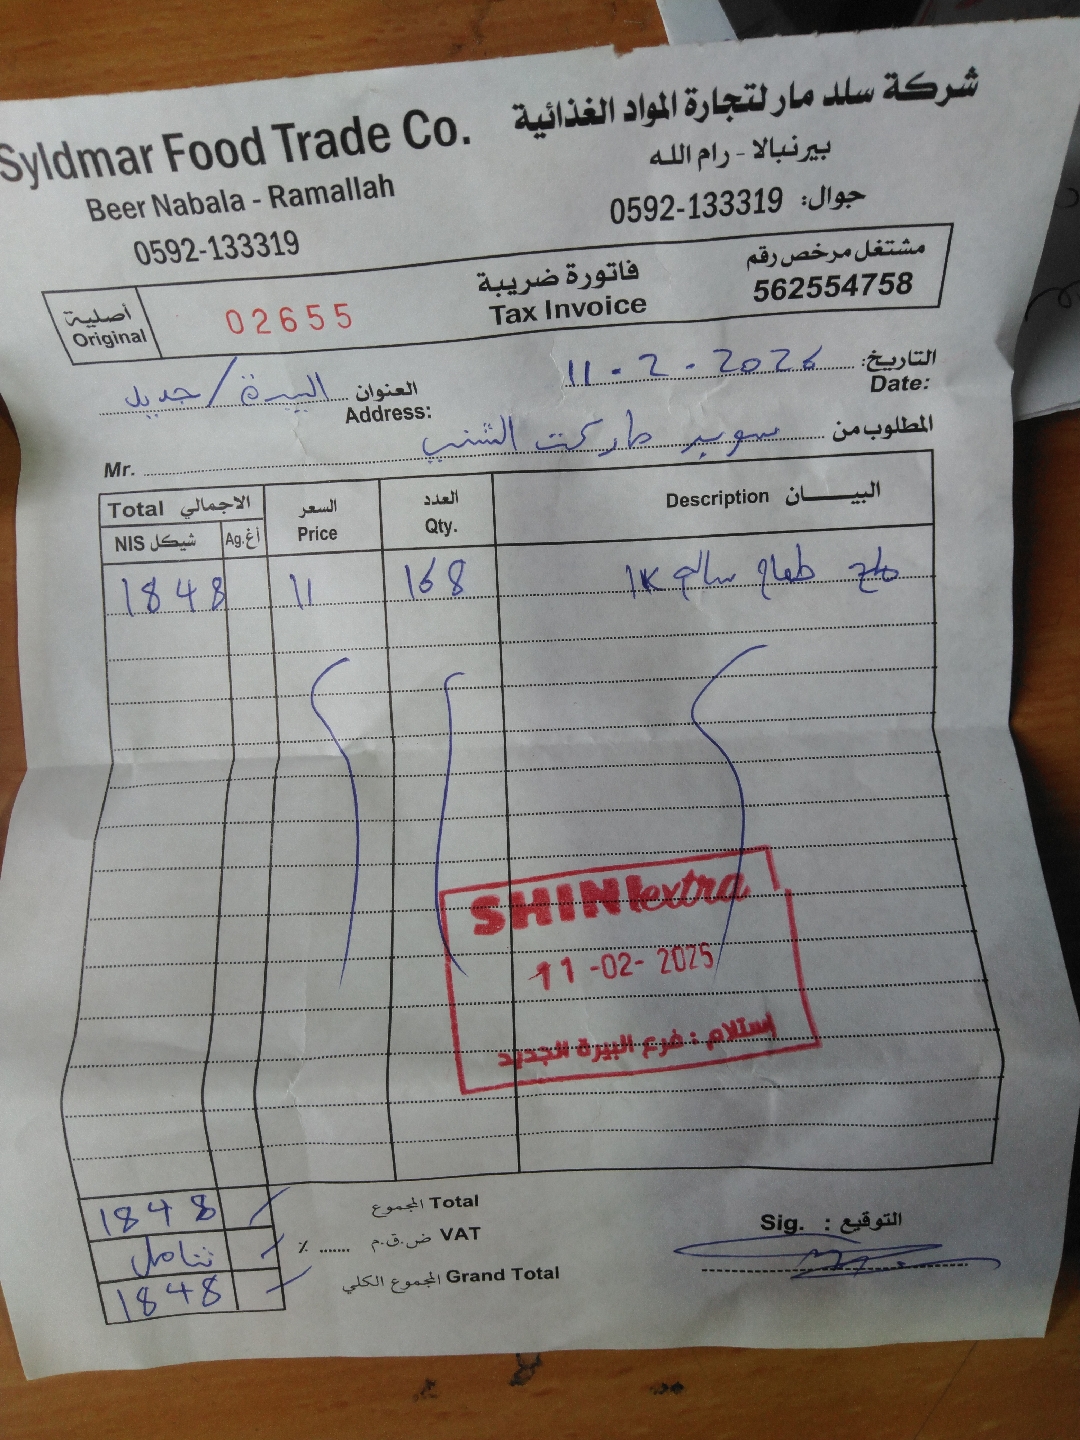 Syldmar Food Trade Co.
شركة سلد مار لتجارة المواد الغذائية
Beer Nabala - Ramallah
بيرنبالا - رام الله
0592-133319
جوال: 0592-133319
أصلية
Original
02655
فاتورة ضريبة
Tax Invoice
مشتغل مرخص رقم
562554758
التاريخ: 11-2-2026
Date:
العنوان البيرة / جديد
Address:
المطلوب من سوبر ماركت الشني
Mr.
Total الاجمالي
السعر
العدد
Description البيـــــان
NIS شيكل
أغ.Ag.
Price
Qty.
1848 11 168 ملح طعام سالم 1K
SHINI extra
11-02-2025
إستلام : فرع البيرة الجديد
1848 المجموع Total
شامل ٪ ...... ض.ق.م VAT
1848 المجموع الكلي Grand Total
Sig. : التوقيع